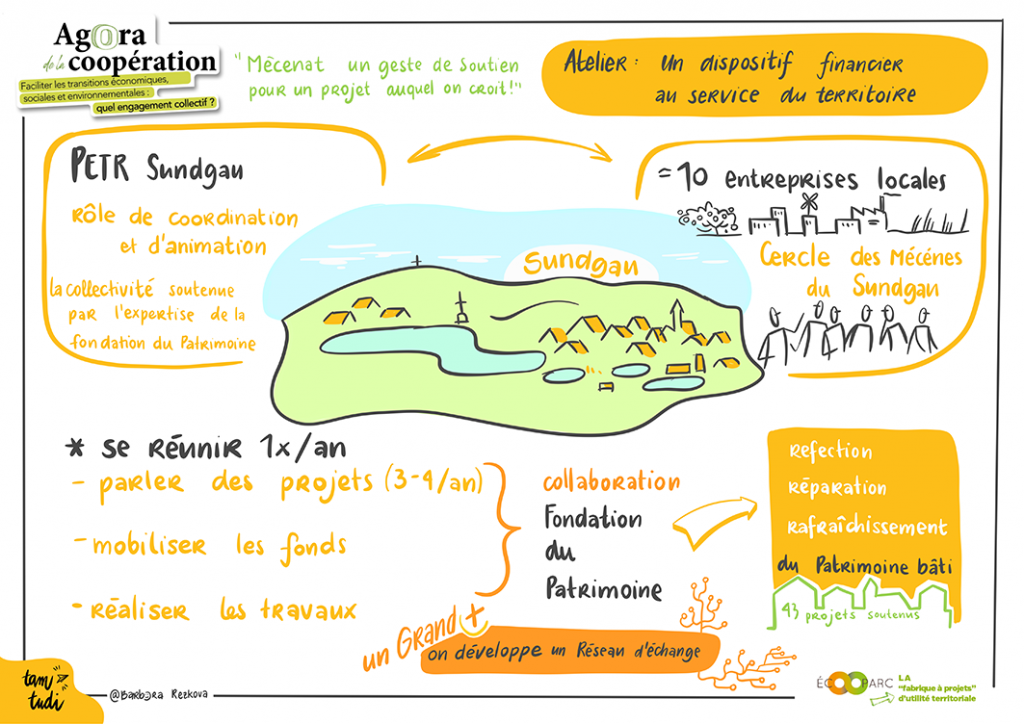 Agora
de la coopération
Faciliter les transitions économiques,
sociales et environnementales :
quel engagement collectif ?
"Mécénat un geste de soutien
pour un projet auquel on croit!"
Atelier : Un dispositif financier
au service du territoire
PETR Sundgau
rôle de coordination
et d'animation
la collectivité soutenue
par l'expertise de la
fondation du Patrimoine
= 10 entreprises locales
Cercle des Mécénes
du Sundgau
Sundgau
* Se réunir 1x/an
- parler des projets (3-4/an)
- mobiliser les fonds
- réaliser les travaux
collaboration
Fondation
du
Patrimoine
Refection
réparation
rafraîchissement
du Patrimoine bâti
43 projets soutenus
un Grand +
on développe un Réseau d'échange
tam
tudi
@Barbora Rezkova
ÉCOOPARC
LA
"fabrique à projets"
d'utilité territoriale